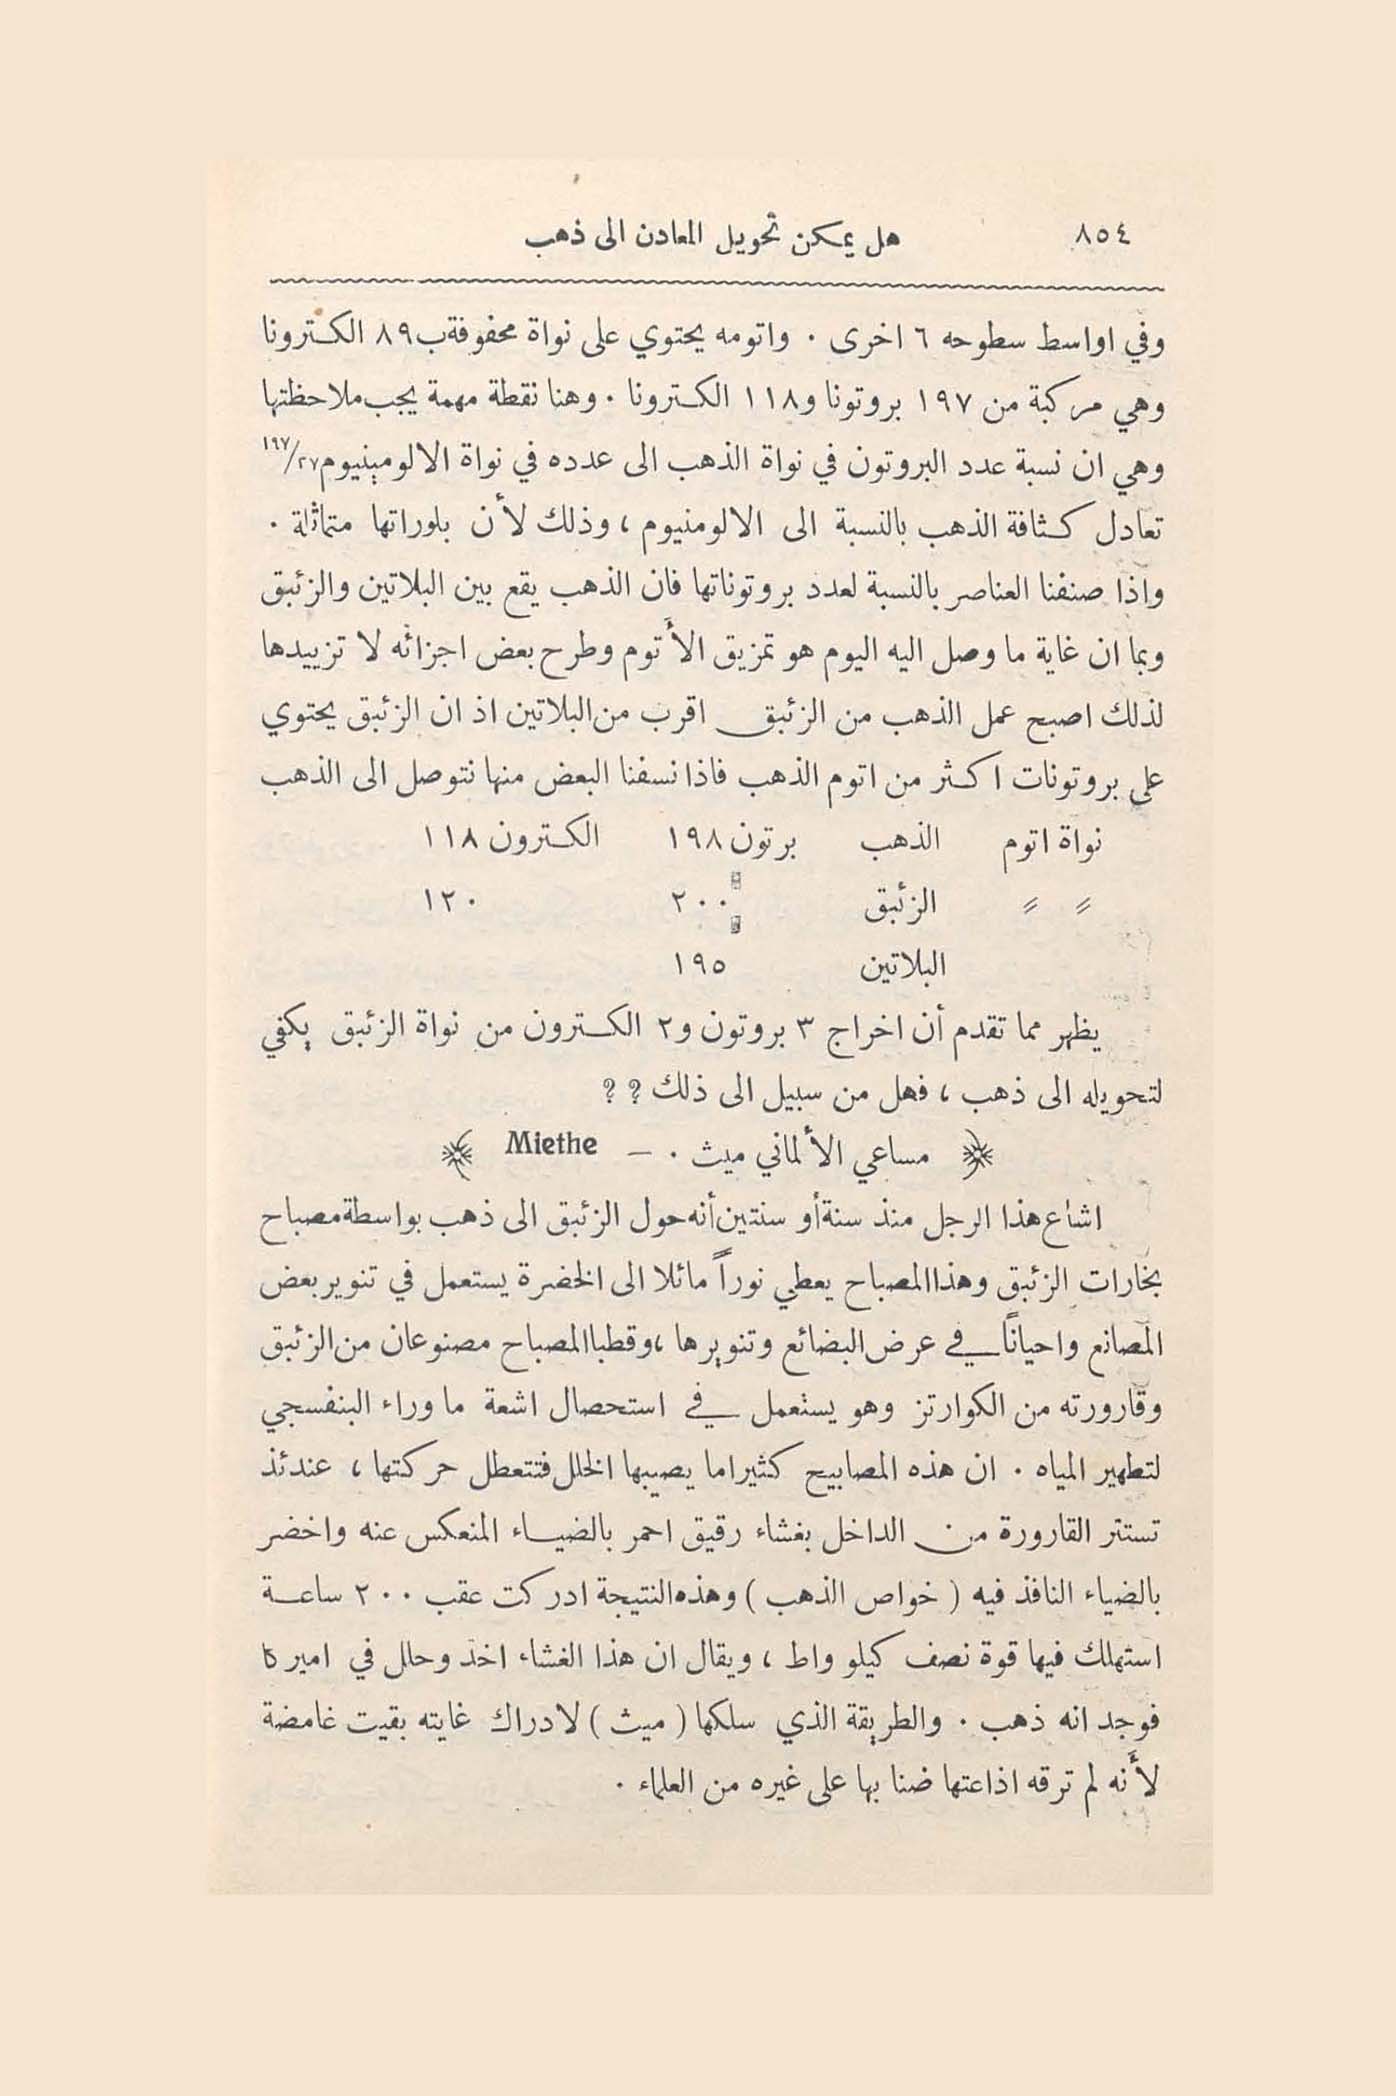 ٨٥٤ هل يمكن تحويل المعادن الى ذهب
وفي اواسط سطوحه ٦ اخرى . واتومه يحتوي على نواة محفوفة ب٨٩ الكترونا
وهي مركبة من ١٩٧ بروتونا و١١٨ الكترونا . وهنا نقطة مهمة يجب ملاحظتها
وهي ان نسبة عدد البروتون في نواة الذهب الى عدده في نواة الالومينيوم ١٩٧/٢٧
تعادل كثافة الذهب بالنسبة الى الالومنيوم ، وذلك لأن بلوراتها متماثلة .
واذا صنفنا العناصر بالنسبة لعدد بروتوناتها فان الذهب يقع بين البلاتين والزئبق
وبما ان غاية ما وصل اليه اليوم هو تمزيق الأتوم وطرح بعض اجزائه لا تزييدها
لذلك اصبح عمل الذهب من الزئبق اقرب من البلاتين اذ ان الزئبق يحتوي
على بروتونات اكثر من اتوم الذهب فاذا نسفنا البعض منها نتوصل الى الذهب
نواة اتوم الذهب برتون ١٩٨ الكترون ١١٨
〃 〃 الزئبق ٢٠٠ ١٢٠
البلاتين ١٩٥
يظهر مما تقدم أن اخراج ٣ بروتون و٢ الكترون من نواة الزئبق يكفي
لتحويله الى ذهب ، فهل من سبيل الى ذلك ؟ ؟
مساعي الألماني ميث . — Miethe
اشاع هذا الرجل منذ سنة أو سنتين أنه حول الزئبق الى ذهب بواسطة مصباح
بخارات الزئبق وهذا المصباح يعطي نوراً مائلا الى الخضرة يستعمل في تنوير بعض
المصانع واحياناً في عرض البضائع وتنويرها ، وقطبا المصباح مصنوعان من الزئبق
وقارورته من الكوارتز وهو يستعمل في استحصال اشعة ما وراء البنفسجي
لتطهير المياه . ان هذه المصابيح كثيراما يصيبها الخلل فتتعطل حركتها ، عندئذ
تستتر القارورة من الداخل بغشاء رقيق احمر بالضياء المنعكس عنه واخضر
بالضياء النافذ فيه ( خواص الذهب ) وهذه النتيجة ادركت عقب ٢٠٠ ساعة
استهلك فيها قوة نصف كيلو واط ، ويقال ان هذا الغشاء اخذ وحلل في اميركا
فوجد انه ذهب . والطريقة الذي سلكها ( ميث ) لادراك غايته بقيت غامضة
لأنه لم ترقه اذاعتها ضنا بها على غيره من العلماء .